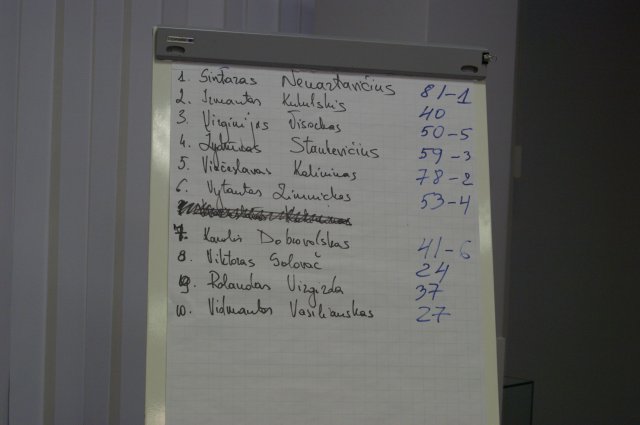 1. Gintaras Nenartavičius 81-1
2. Izmantas Kukulskis 40
3. Virginijus Visockas 50-5
4. Stankevičius 59-3
5. Viačeslavas Kalininas 78-2
6. Vytautas Zimnickas 53-4
7. Karolis Dobrovolskas 41-6
8. Viktoras Solovač 24
9. Rolandas Vizgirda 37
10. Vidmantas Vasiliauskas 27